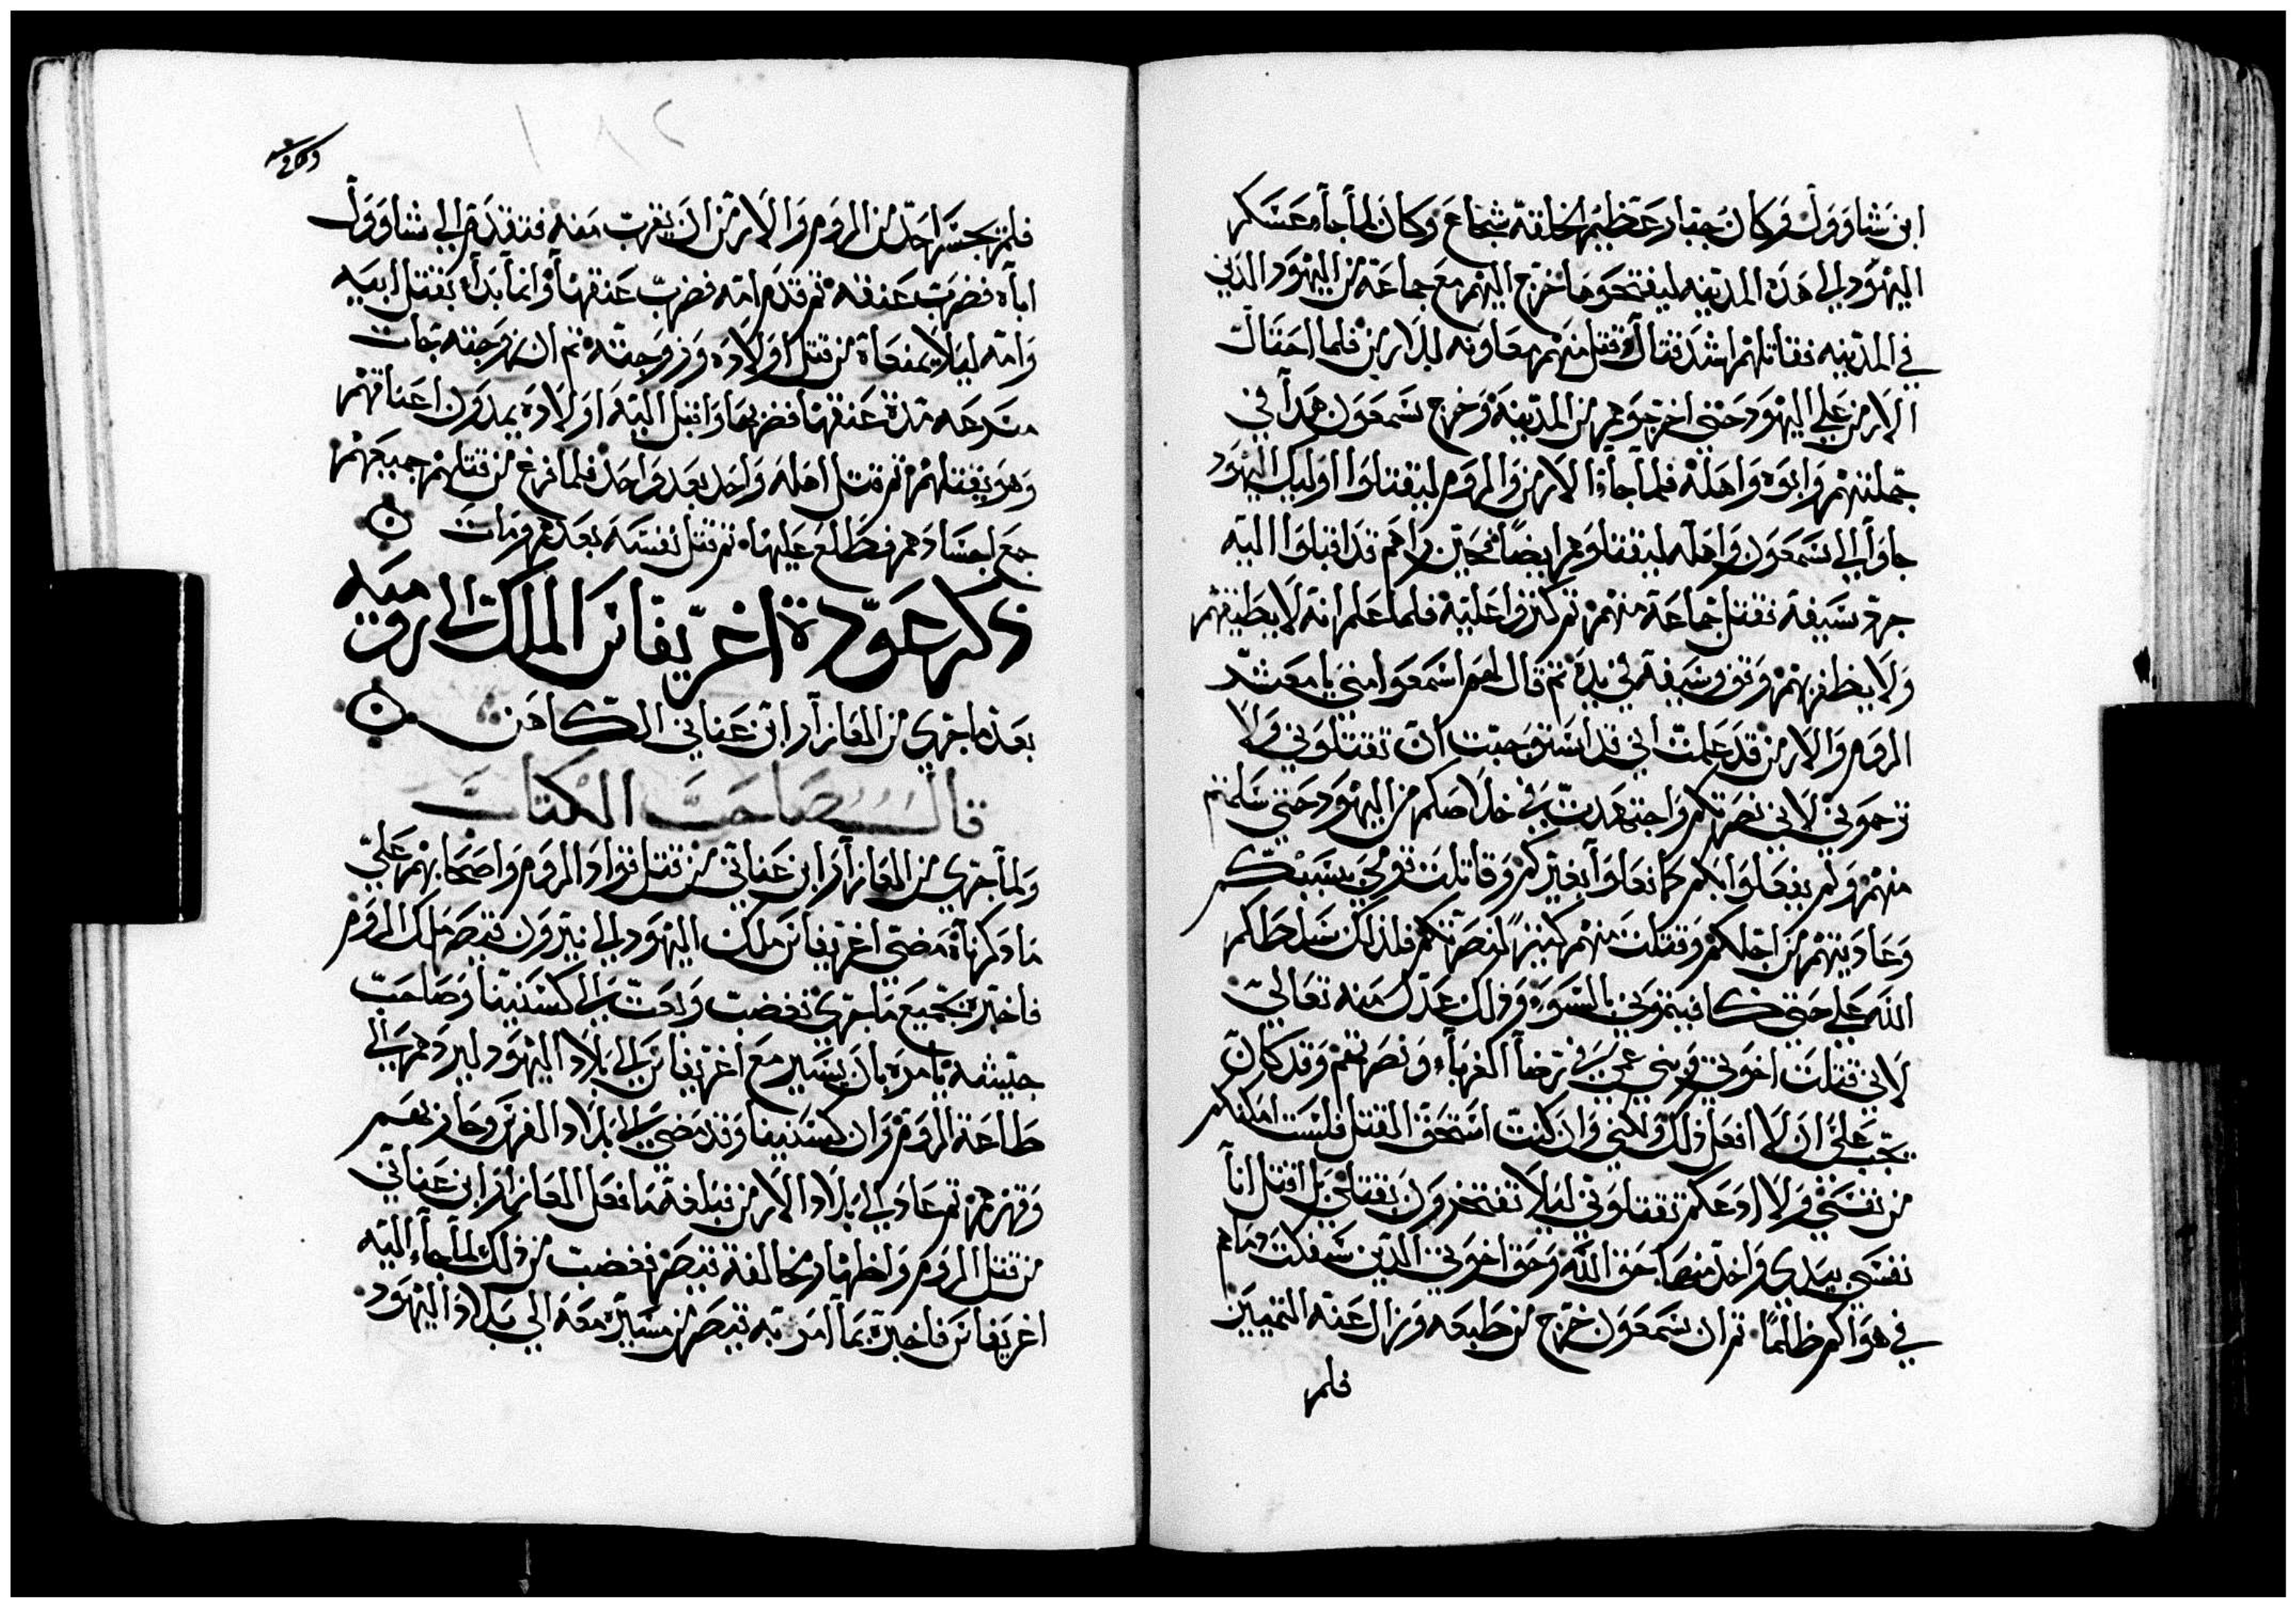 ابن شاوول وكان جبار عظيم الخلقة شجاع وكان لما جاء عسكر
اليهود الي هذه المدينه ليفتحوها خرج اليهم مع جماعة من اليهود الدين
في المدينه فقاتلهم اشد قتال وقتل منهم معاونه للارمن فلما احتال
الارمن علي اليهود حتي اخرجوهم من المدينة وخرج شمعون هدا في
جملتهم وابوه واهله فلما جاؤا الارمن والروم ليقتلوا اوليك اليهود
جاوا الي شمعون واهله ليقتلوهم ايضا فحين راهم قد اقبلوا اليه
جرد سيفه فقتل جماعة منهم ثم كثروا عليه فلما علم انه لا يطيقهم
ولا يظفر بهم وقف وسيفه في يده ثم قال لهم اسمعوا مني يا معشر
الروم والارمن قد علمت اني قد استوجبت ان تقتلوني ولا
ترحموني لاني نصرتكم واجتهدت في خلاصكم من اليهود حتي سلمتم
منهم ولم يفعلوا بكم كما فعلوا بغيركم وقاتلت قومي بسببكم
وعاديتهم من اجلكم وقتلت منهم كثيرا لنصرتكم فلذلك سلطكم
الله علي حتي كافيتموني بالسوء وذلك عدل منه تعالي
لاني قتلت اخوتي وبني عمي في رضا الغرباء ونصرتهم وقد كان
يجب علي ان لا افعل ذلك ولكني وان كنت استحق القتل فلست امكنكم
من نفسي ولا ادعكم تقتلوني ليلا تفتخرون بقتلي بل اقتل انا
نفسي بيدي واخد منها حق الله وحق اخوتي الدين سفكت دماهم
في هواكم ظالما ثم ان شمعون خرج من طبعه وزال عنه التمييز
فلم
فلم يجسر احد من الروم والارمن ان يقرب منه فتقدم الي شاوول
اباه فضرب عنقه ثم قدم امه فضرب عنقها وانما بدا بقتل ابيه
وامه ليلا يمنعاه من قتل اولاده وزوجته ثم ان زوجته جات
مسرعه مدة عنقها فضربها واقبل اليه اولاده يمدون اعناقهم
وهو يقتلهم ثم قتل اهله واحد بعد واحد فلما فرغ من قتلهم جميعهم
جمع اجسادهم فطلع عليها ثم قتل نفسه بعدهم ومات
ذكر عودة اغريفاس الملك الي روميه
بعد ما جري من العازار ابن عناني الكاهن
قال صاحب الكتاب
ولما جري من العازار ابن عناني من قتل قواد الروم واصحابهم علي
ما ذكرناه مضي اغريفاس ملك اليهود الي نيرون قيصر ملك الروم
فاخبره بجميع ما جري فغضب وبعت الي كسنيينا وصاحب
جيشه يامره بان يسير مع اغريفاس الي بلاد اليهود ليردهم الي
طاعة الروم وان كسنيينا وقد مضي الي بلاد الفرس وحاربهم
وقهرهم ثم عاد الي بلاد الارمن فبلغه ما فعل العازار ابن عناني
من قتل الروم واظهار مخالفة قيصر فغضب من ذلك لما جاء اليه
اغريفاس فاخبره بما امر به قيصر من مسيره معه الي بلاد اليهود